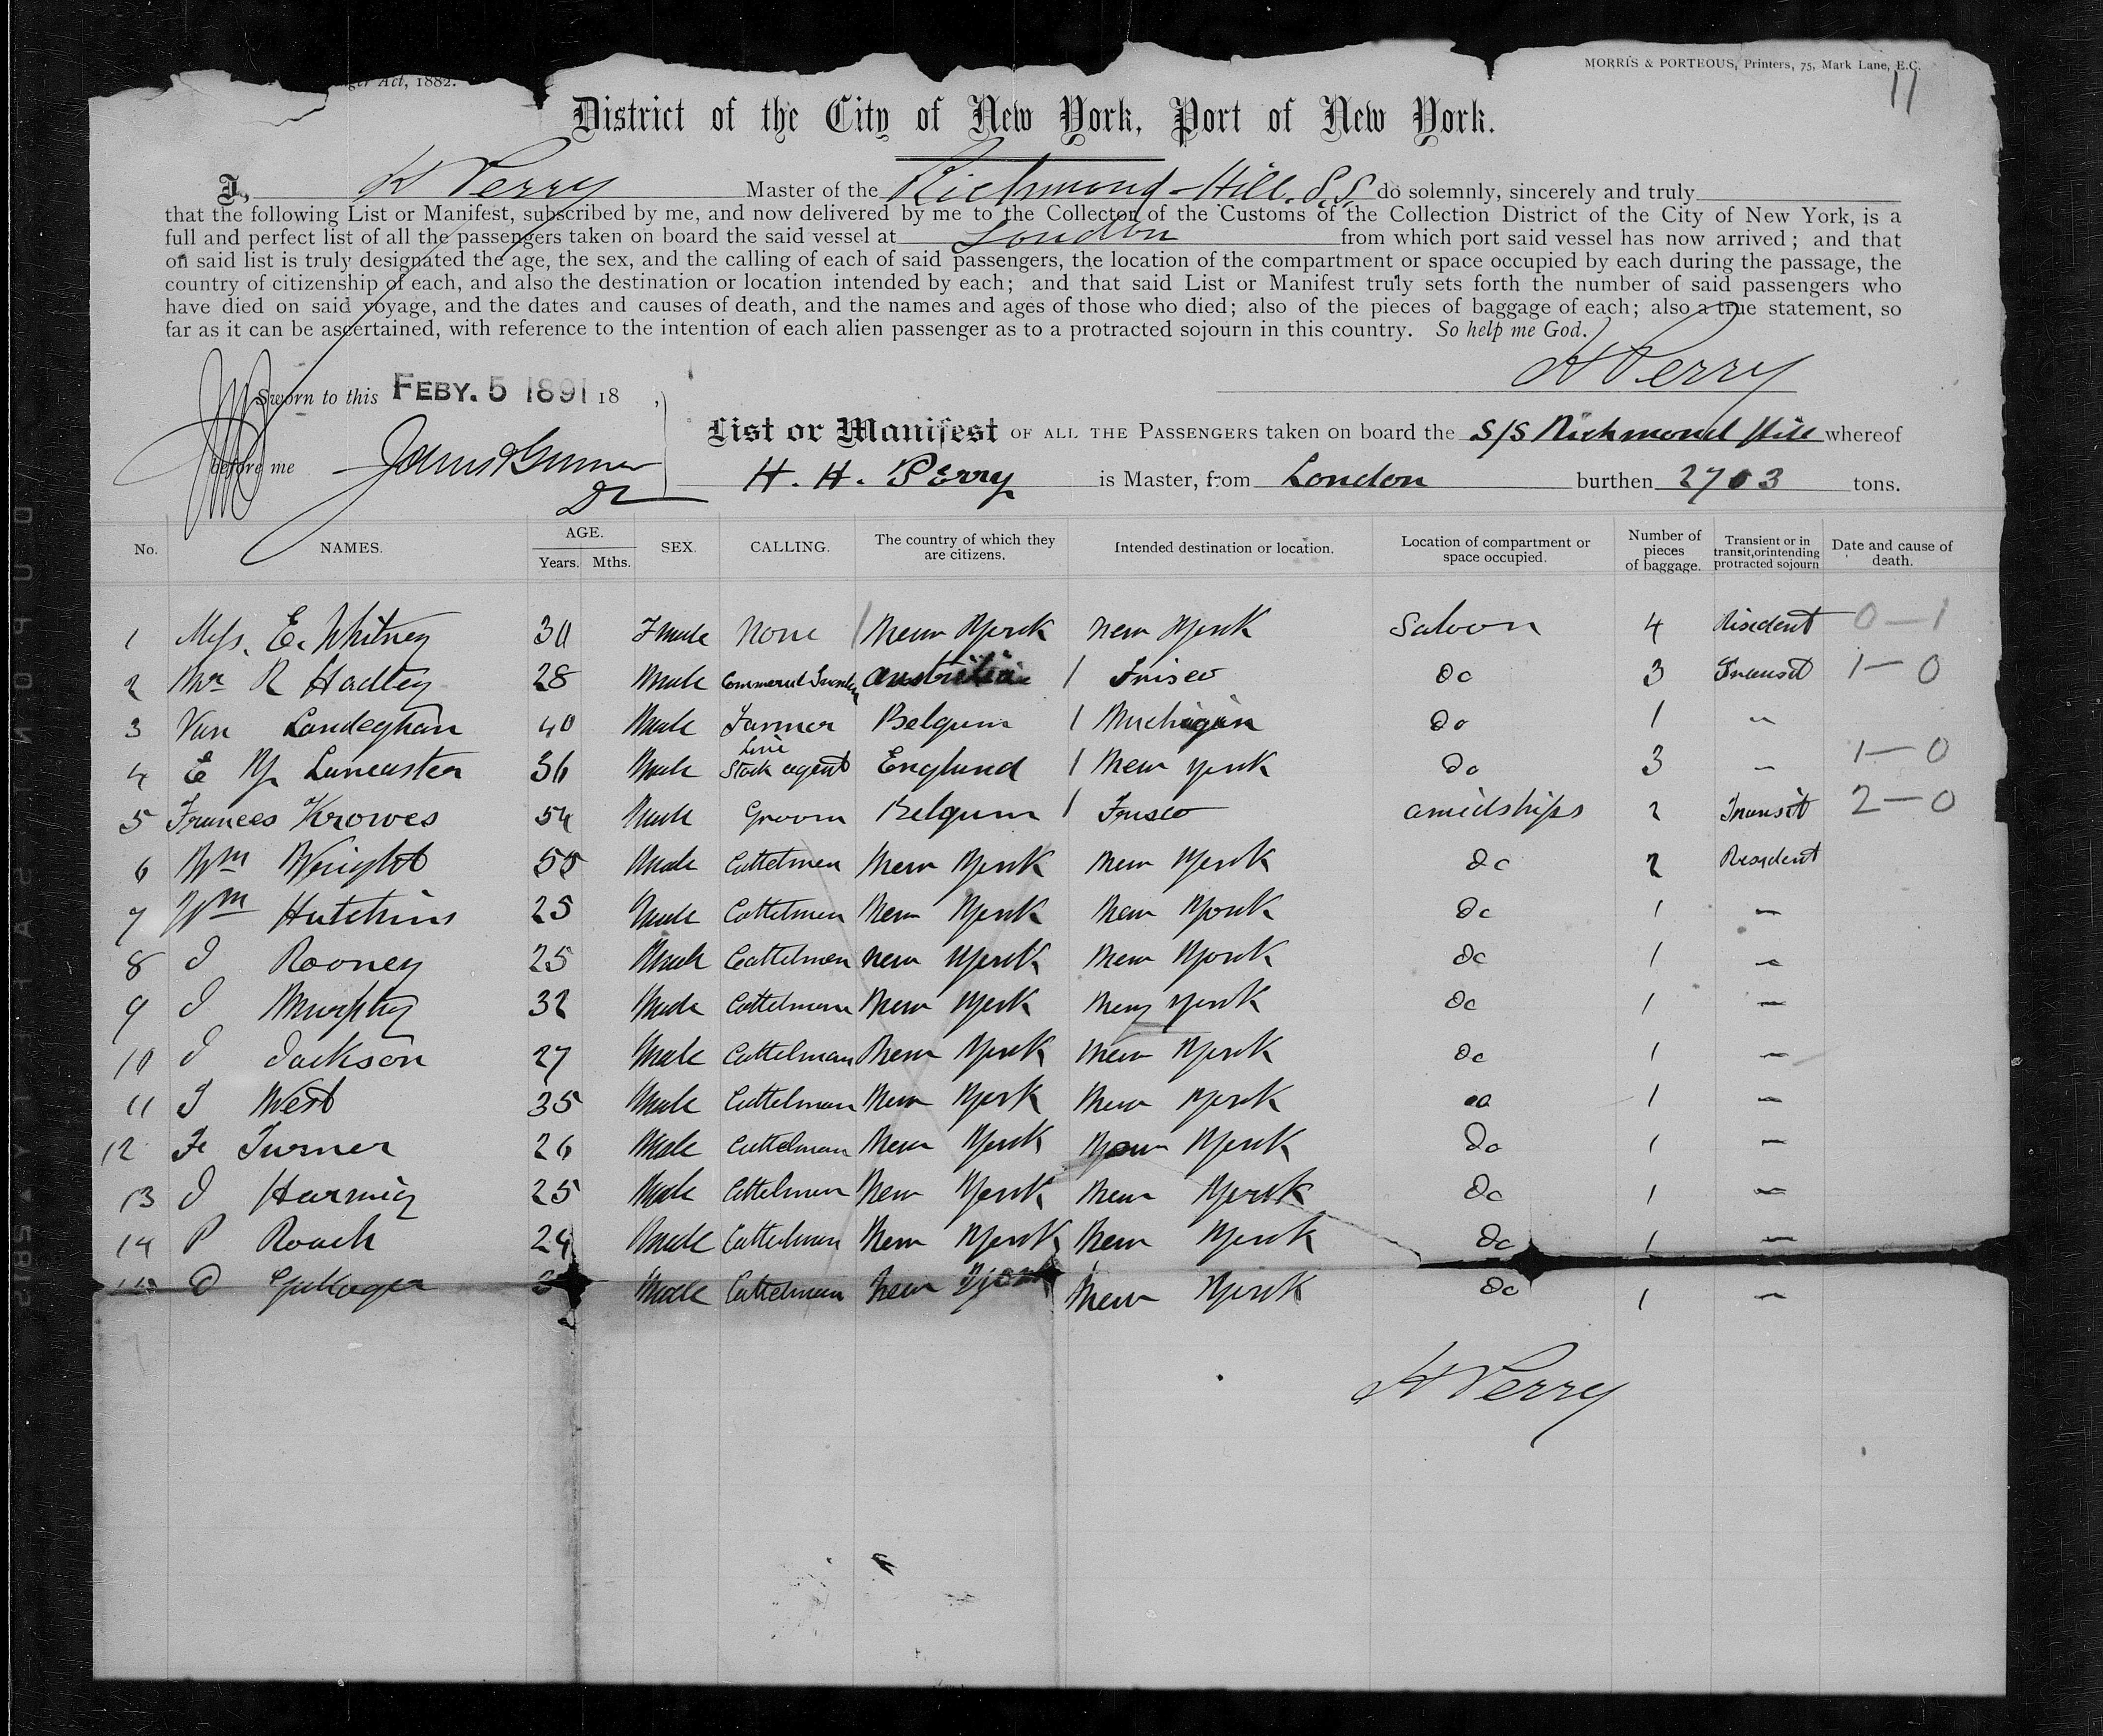 Act, 1882.
MORRIS & PORTEOUS, Printers, 75, Mark Lane, E.C.
District of the City of New York, Port of New York.
I, H Perry Master of the Richmond Hill. S.S. do solemnly, sincerely and truly
that the following List or Manifest, subscribed by me, and now delivered by me to the Collector of the Customs of the Collection District of the City of New York, is a
full and perfect list of all the passengers taken on board the said vessel at London from which port said vessel has now arrived; and that
on said list is truly designated the age, the sex, and the calling of each of said passengers, the location of the compartment or space occupied by each during the passage, the
country of citizenship of each, and also the destination or location intended by each; and that said List or Manifest truly sets forth the number of said passengers who
have died on said voyage, and the dates and causes of death, and the names and ages of those who died; also of the pieces of baggage of each; also a true statement, so
far as it can be ascertained, with reference to the intention of each alien passenger as to a protracted sojourn in this country. So help me God.
H Perry
Sworn to this FEBY. 5 1891 18 ,
before me
List or Manifest OF ALL THE PASSENGERS taken on board the S/S Richmond Hill whereof
H. H. Perry is Master, from London burthen 2703 tons.
No. NAMES. AGE. Years. Mths. SEX. CALLING. The country of which they are citizens. Intended destination or location. Location of compartment or space occupied. Number of pieces of baggage. Transient or in transit, or intending protracted sojourn Date and cause of death.
1 E. Whitney 30 None New York New York Saloon 4 Resident 0—1
2 Mr R Hadley 28 Male Australia / Frisco do 3 Transit 1—0
3 Van Landeghan 40 Male Farmer Belgum / Michigan do 1 "
4 E Y Lancaster 36 Male Live Stock agent England / New York do 3 " 1—0
5 Frances Krowes 54 Male Groom Belgum / Frisco amidships 2 Transit 2—0
6 Wm Wright 55 Male Cattelmen New York New York do 2 Resident
7 Wm Hutchins 25 Male Cattelmen New York New York do 1 "
8 J Rooney 25 Male Cattelmen New York New York do 1 "
9 J Murphy 32 Male Cattelman New York New York do 1 "
10 J Jackson 27 Male Cattelman New York New York do 1 "
11 J West 35 Male Cattelman New York New York do 1 "
12 F Turner 26 Male Cattelman New York New York do 1 "
13 J 25 Male Cattelman New York New York do 1 "
14 P Roach 24 Male Cattelman New York New York do 1 "
Male Cattelman New York New York do 1 "
H Perry